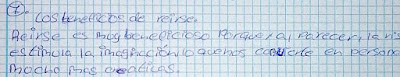 1.
Los beneficios de reirse.
Reirse es muy beneficioso Porque al Parecer, la ris
estimula la imaginación lo que nos convierte en persona
mocho mas creaticas.